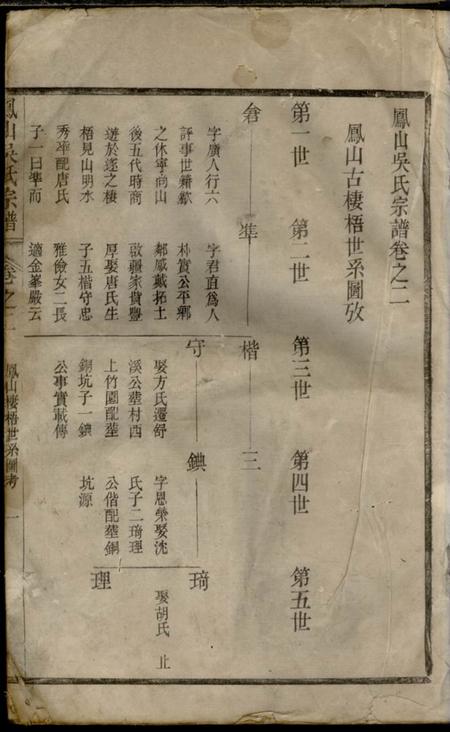 鳳山吳氏宗譜卷之二
鳳山古棲梧世系圖攷
第一世 第二世 第三世 第四世 第五世
準 楷 三
字廣人行六
評事世籍歙
之休寧向山
後五代時商
遊於遂之棲
梧見山明水
秀卒配唐氏
子一曰準而
字君直爲人
朴實公平鄉
鄰咸戴拓土
啟疆家貲豐
厚娶唐氏生
子五楷守忠
雅儉女二長
適金峯嚴云
守 錪 琦
娶方氏遷舒
溪公葬村西
上竹園配葬
銅坑子一錪
公事實載傳
字恩榮娶沈
氏子二琦理
公偕配葬銅
坑源
娶胡氏 止
理
鳳山吳氏宗譜 卷之二 鳳山棲梧世系圖考 一